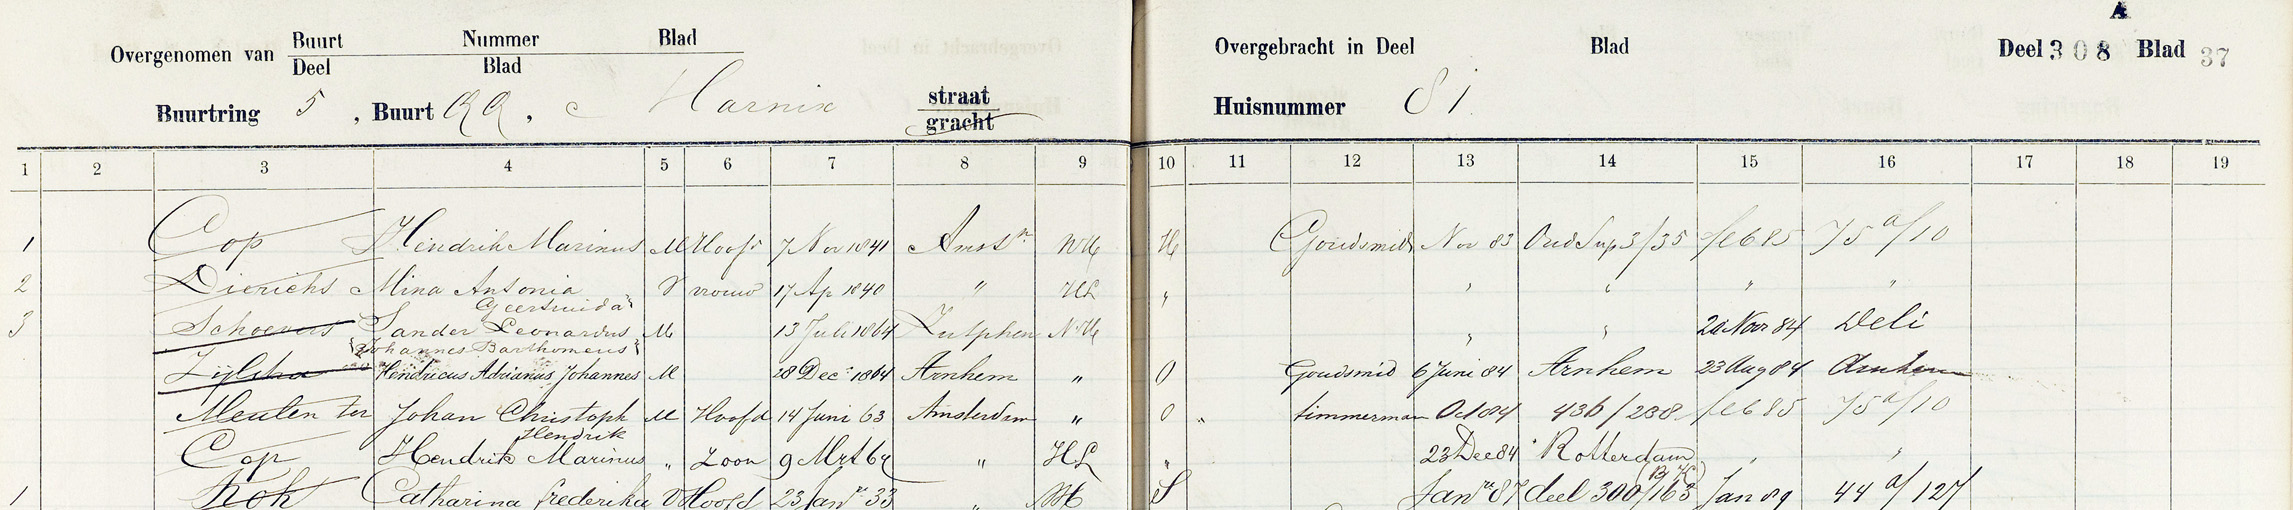 A
Overgenomen van Buurt Nummer Blad
Deel Blad
Overgebracht in Deel Blad Deel 308 Blad 37
Buurtring 5, Buurt QQ, c Marnix straat
gracht
Huisnummer 81
1 2 3 4 5 6 7 8 9 10 11 12 13 14 15 16 17 18 19
1 Cop Hendrik Marinus M Hoofd 7 Nov 1841 Amstn NH H Goudsmid Nov 83 Oud Sup 3/35 feb 85 75 a/10
2 Dierichs Mina Antonia V vrouw 17 Ap 1840 " HL " " " " "
Geertruida
3 Schoevers Sander Leonardus M 13 Juli 1864 Zutphen NH " " 20 Nov 84 Deli
Johannes Barthomeus
Zijlstra Hendricus Adrianus Johannes M 28 Dec 1864 Arnhem " O Goudsmid 6 Juni 84 Arnhem 23 Aug 84 Arnhem
Meulen ter Johan Christoph M Hoofd 14 Juni 63 Amsterdam " O " timmerman Oct 84 436/238 feb 85 75 a/10
Hendrik
Cop Hendrik Marinus " Zoon 9 Mrt 67 " HL " 23 Dec 84 Rotterdam " "
1 Kok Catharina frederika V Hoofd 23 Jan 33 " S Jan 87 deel 300/163 Jan 89 44 a/127